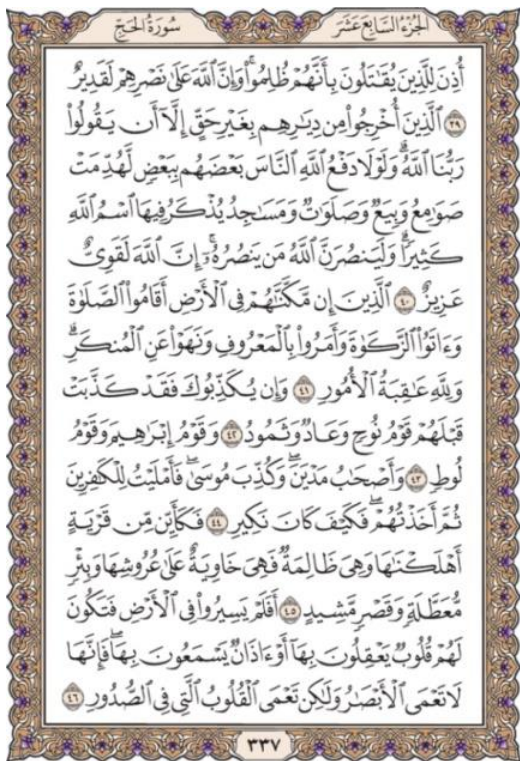 الجُزْءُ السَّابِعَ عَشَرَ
سُورَةُ الحَجِّ
أُذِنَ لِلَّذِينَ يُقَٰتَلُونَ بِأَنَّهُمْ ظُلِمُوا۟ۚ وَإِنَّ ٱللَّهَ عَلَىٰ نَصْرِهِمْ لَقَدِيرٌ
٣٩ ٱلَّذِينَ أُخْرِجُوا۟ مِن دِيَٰرِهِم بِغَيْرِ حَقٍّ إِلَّآ أَن يَقُولُوا۟
رَبُّنَا ٱللَّهُۗ وَلَوْلَا دَفْعُ ٱللَّهِ ٱلنَّاسَ بَعْضَهُم بِبَعْضٍ لَّهُدِّمَتْ
صَوَٰمِعُ وَبِيَعٌ وَصَلَوَٰتٌ وَمَسَٰجِدُ يُذْكَرُ فِيهَا ٱسْمُ ٱللَّهِ
كَثِيرًاۗ وَلَيَنصُرَنَّ ٱللَّهُ مَن يَنصُرُهُۥٓۚ إِنَّ ٱللَّهَ لَقَوِىٌّ
عَزِيزٌ ٤٠ ٱلَّذِينَ إِن مَّكَّنَّٰهُمْ فِى ٱلْأَرْضِ أَقَامُوا۟ ٱلصَّلَوٰةَ
وَءَاتَوُا۟ ٱلزَّكَوٰةَ وَأَمَرُوا۟ بِٱلْمَعْرُوفِ وَنَهَوْا۟ عَنِ ٱلْمُنكَرِۗ
وَلِلَّهِ عَٰقِبَةُ ٱلْأُمُورِ ٤١ وَإِن يُكَذِّبُوكَ فَقَدْ كَذَّبَتْ
قَبْلَهُمْ قَوْمُ نُوحٍ وَعَادٌ وَثَمُودُ ٤٢ وَقَوْمُ إِبْرَٰهِيمَ وَقَوْمُ
لُوطٍ ٤٣ وَأَصْحَٰبُ مَدْيَنَۖ وَكُذِّبَ مُوسَىٰۖ فَأَمْلَيْتُ لِلْكَٰفِرِينَ
ثُمَّ أَخَذْتُهُمْۖ فَكَيْفَ كَانَ نَكِيرِ ٤٤ فَكَأَيِّن مِّن قَرْيَةٍ
أَهْلَكْنَٰهَا وَهِىَ ظَالِمَةٌ فَهِىَ خَاوِيَةٌ عَلَىٰ عُرُوشِهَا وَبِئْرٍ
مُّعَطَّلَةٍ وَقَصْرٍ مَّشِيدٍ ٤٥ أَفَلَمْ يَسِيرُوا۟ فِى ٱلْأَرْضِ فَتَكُونَ
لَهُمْ قُلُوبٌ يَعْقِلُونَ بِهَآ أَوْ ءَاذَانٌ يَسْمَعُونَ بِهَاۖ فَإِنَّهَا
لَا تَعْمَى ٱلْأَبْصَٰرُ وَلَٰكِن تَعْمَى ٱلْقُلُوبُ ٱلَّتِى فِى ٱلصُّدُورِ ٤٦
٣٣٧